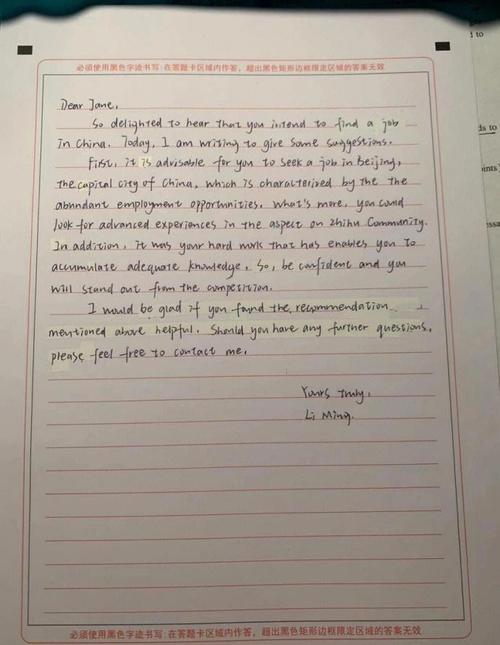 必须使用黑色字迹书写:在答题卡区域内作答，超出黑色矩形边框限定区域的答案无效
Dear Jane,
So delighted to hear that you intend to find a job
in China. Today, I am writing to give some suggestions.
First, it is advisable for you to seek a job in Beijing,
the capital city of China, which is characterized by the the
abnndant employment opportunities. What's more, you could
look for advanced experiences in the aspect on zhihu Community.
In addition, it was your hard work that has enables you to
accumulate adequate knowledge. So, be confident and you
will stand out from the competition.
I would be glad if you found the recommendation I
mentioned above helpful. Should you have any further questions,
please feel free to contact me.
Yours truly,
Li Ming.
必须使用黑色字迹书写:在答题卡区域内作答，超出黑色矩形边框限定区域的答案无效
to
ds to